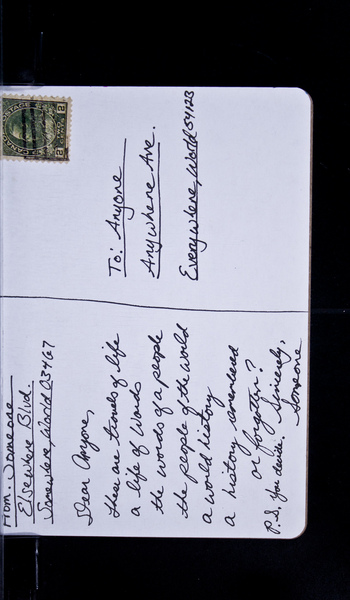 From: Someone
Elsewhere Blvd.
Somewhere, World 03467
Dear Anyone,
these are travels of life
a life of words
the words of a people
the people of the world
a world history
a history
or forgotten?
P.S. You decide. Sincerely,
Someone
To: Anyone
Anywhere Ave.
Everywhere, World 54123